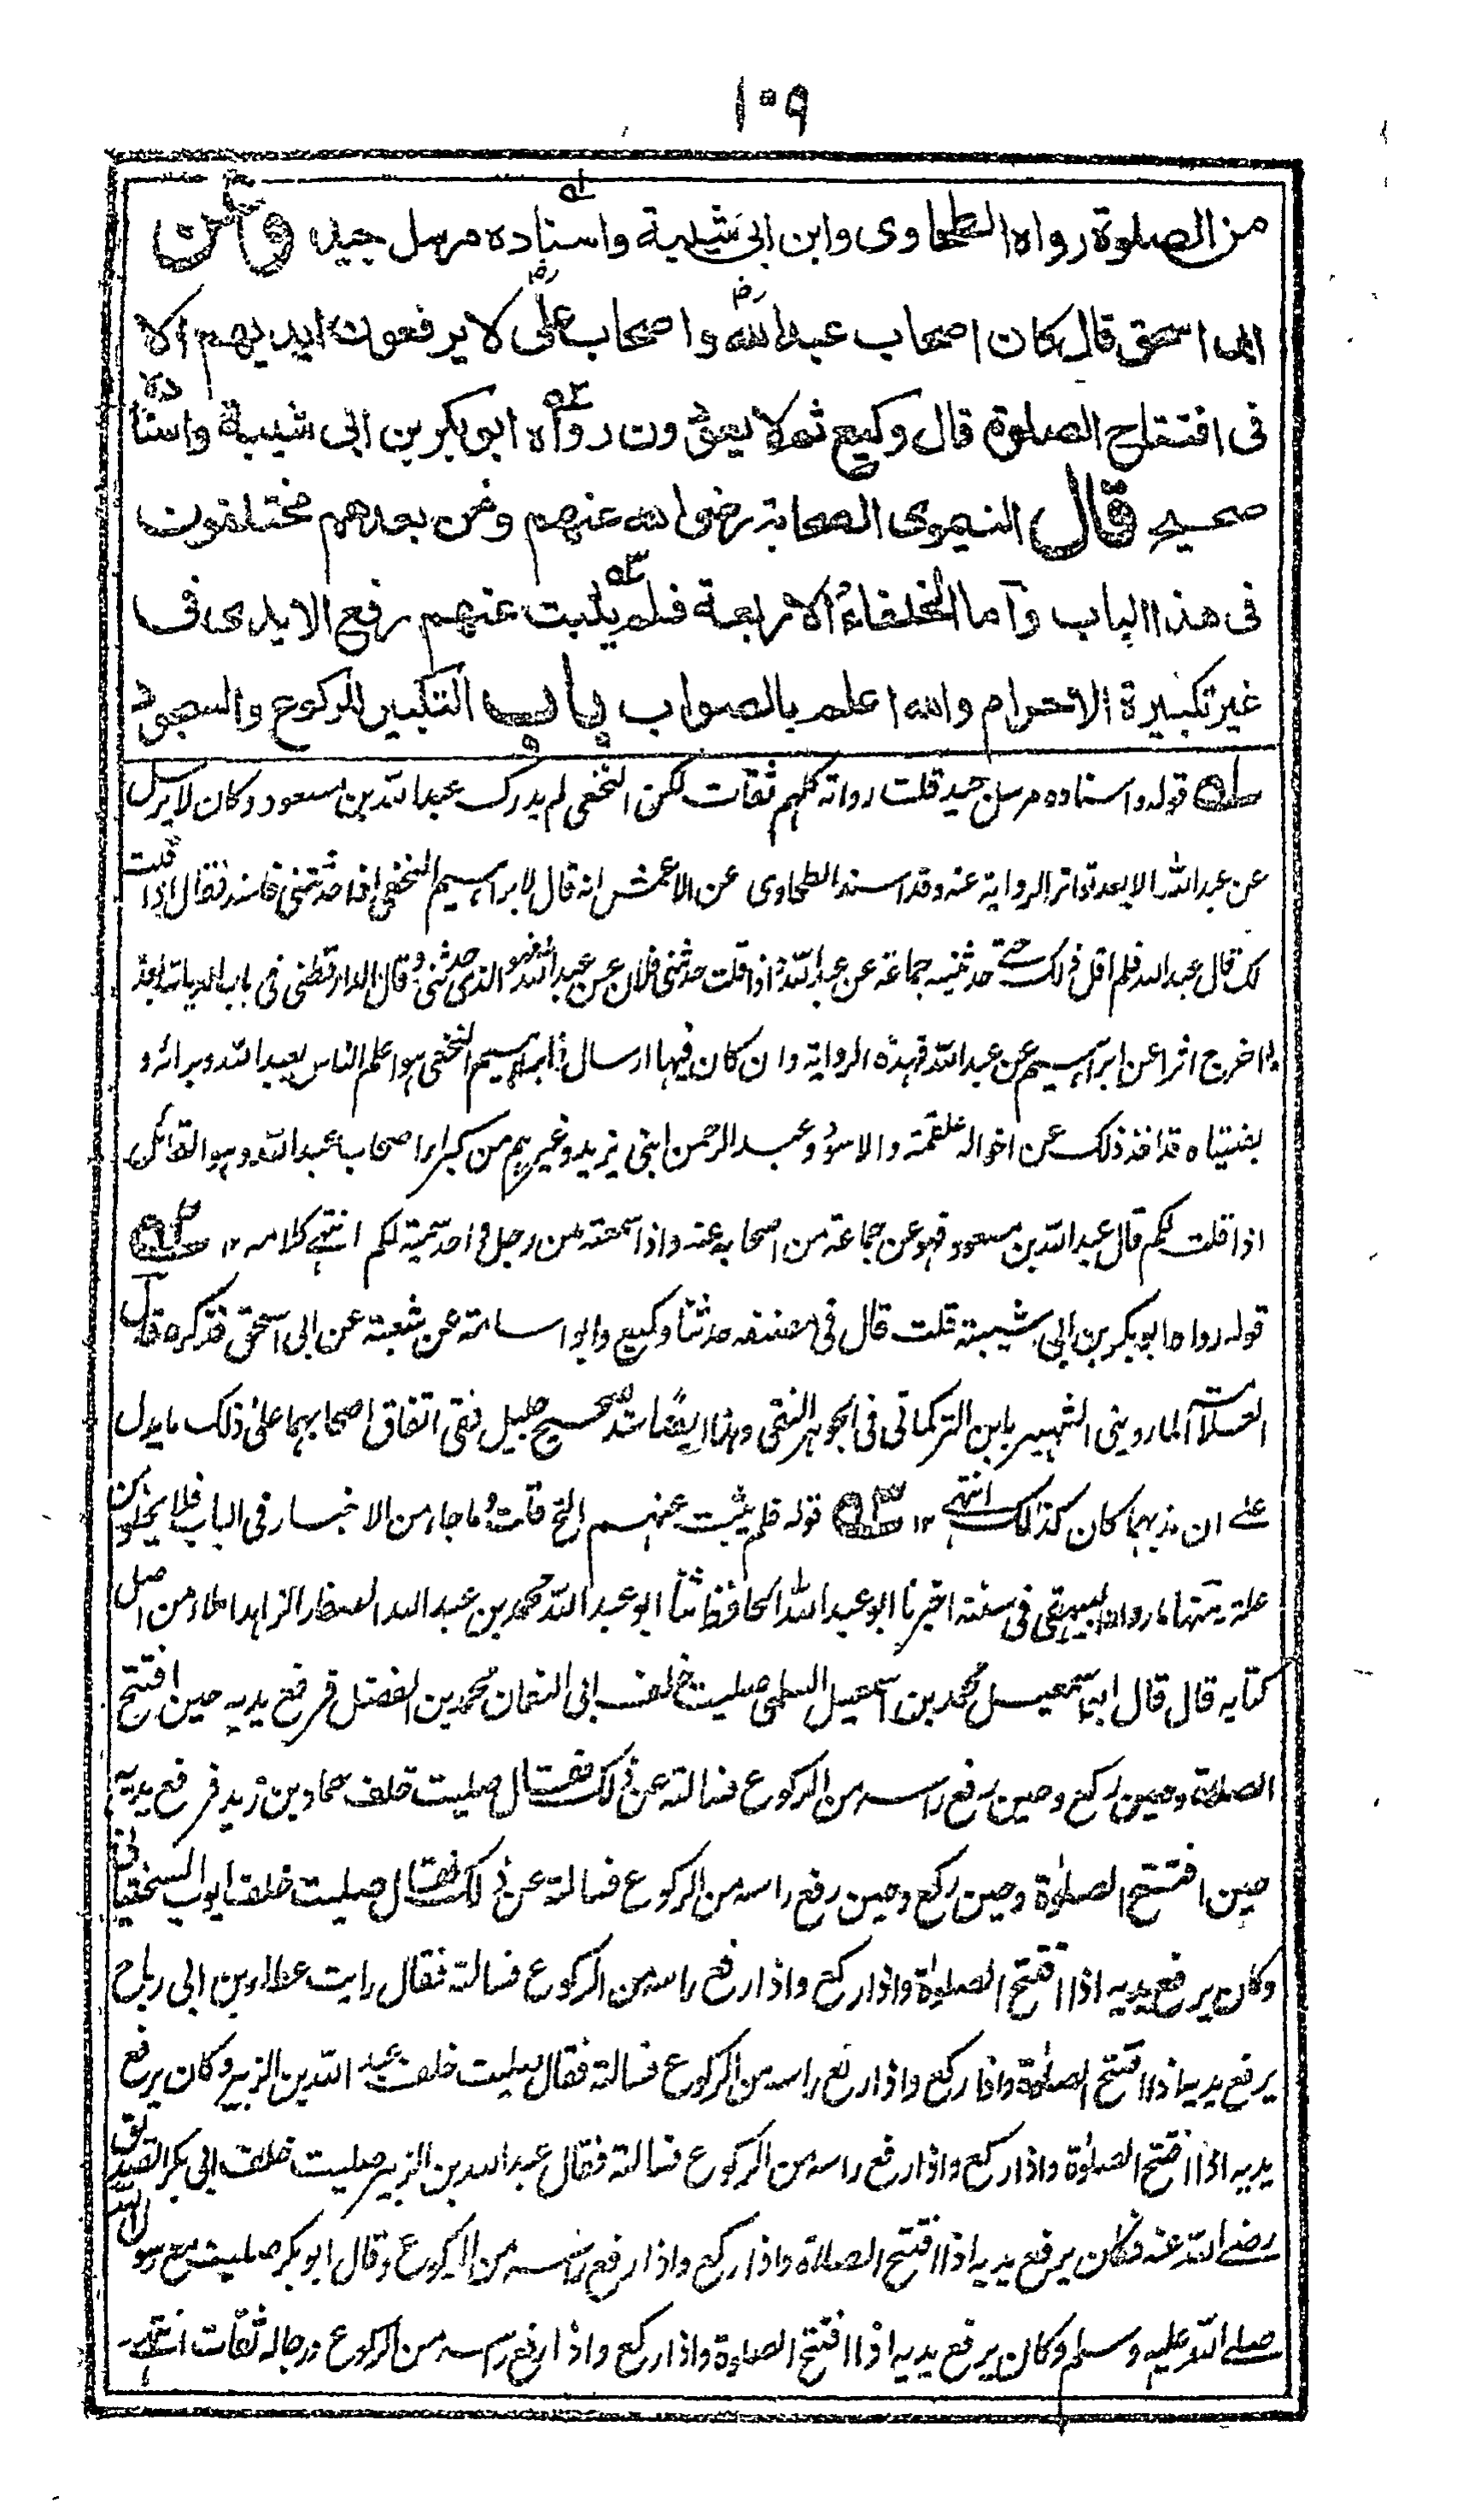 ١٠٩
من الصلوة رواه الطحاوى وابن ابى شيبة واسناده مرسل جيد وعن
ابى اسحق قال كان اصحاب عبد الله رض واصحاب على رض لا يرفعون ايديهم الا
فى افتتاح الصلوة قال وكيع ثم لا يعودون رواه ابو بكر بن ابى شيبة واسناده
صحيح قال النيموى الصحابة رضى الله عنهم ومن بعدهم مختلفون
فى هذا الباب واما الخلفاء الاربعة فلم يثبت عنهم رفع الايدى فى
غير تكبيرة الاحرام والله اعلم بالصواب باب التكبير للركوع والسجود
١ه قوله واسناده مرسل جيد قلت رواته كلهم ثقات لكن النخعى لم يدرك عبد الله بن مسعود وكان لا يرسل
عن عبد الله الا بعد تواتر الرواية عنه وقد اسند الطحاوى عن الاعمش انه قال لابراهيم النخعى اذا حدثتنى فاسند فقال اذا قلت
لك قال عبد الله فلم اقل ذلك حتے حدثنيه جماعة عن عبد الله واذا قلت حدثنى فلان عن عبد الله فهو الذى حدثنى وقال الدارقطنى فى باب الديات بعد
ما اخرج اثرا عن ابراهيم عن عبد الله فهذه الرواية وان كان فيها ارسال فابراهيم النخعى هو اعلم الناس بعبد الله وبرائه و
بفتياه قد اخذ ذلك عن اخواله علقمة والاسود وعبد الرحمن ابنى يزيد وغيرهم من كبراء اصحاب عبد الله وهو القائل
اذا قلت لكم قال عبد الله بن مسعود فهو عن جماعة من اصحابه عنه واذا سمعته من رجل واحد سميته لكم انتهے كلامه ١٢ ٢ه
قوله رواه ابو بكر بن ابى شيبة قلت قال فى مصنفه حدثنا وكيع وابو اسامة عن شعبة عن ابى اسحق فذكره قال
العلامة الماردينى الشهير بابن التركمانى فى الجوهر النقى وهذا ايضا سند صحيح جليل ففى اتفاق اصحابهما على ذلك ما يدل
علے ان مذهبهما كان كذلك انتهے ١٢ ٣ه قوله فلم يثبت عنهم الخ قلت وما جاء من الاخبار فى الباب فلا يخلو من
علة منها ما رواه البيهقى فى سننه اخبرنا ابو عبد الله الحافظ ثنا ابو عبد الله محمد بن عبد الله الصفار الزاهد املاء من اصل
كتابه قال قال ابو اسمعيل محمد بن اسمعيل السلمى صليت خلف ابى النعمان محمد بن الفضل فرفع يديه حين افتتح
الصلاة وحين ركع وحين رفع راسه من الركوع فسالته عن ذلك فقال صليت خلف حماد بن زيد فرفع يديه
حين افتتح الصلوة وحين ركع وحين رفع راسه من الركوع فسالته عن ذلك فقال صليت خلف ايوب السختيانى
وكان يرفع يديه اذا افتتح الصلوة واذا ركع واذا رفع راسه من الركوع فسالته فقال رايت عطاء بن ابى رباح
يرفع يديه اذا افتتح الصلوة واذا ركع واذا رفع راسه من الركوع فسالته فقال صليت خلف عبد الله بن الزبير وكان يرفع
يديه اذا افتتح الصلوة واذا ركع واذا رفع راسه من الركوع فسالته فقال عبد الله بن الزبير صليت خلف ابى بكر الصديق
رضے الله عنه فكان يرفع يديه اذا افتتح الصلاة واذا ركع واذا رفع راسه من الركوع وقال ابو بكر صليت مع رسول الله
صلے الله عليه وسلم وكان يرفع يديه اذا افتتح الصلوة واذا ركع واذا رفع راسه من الركوع ورجاله ثقات انتهے